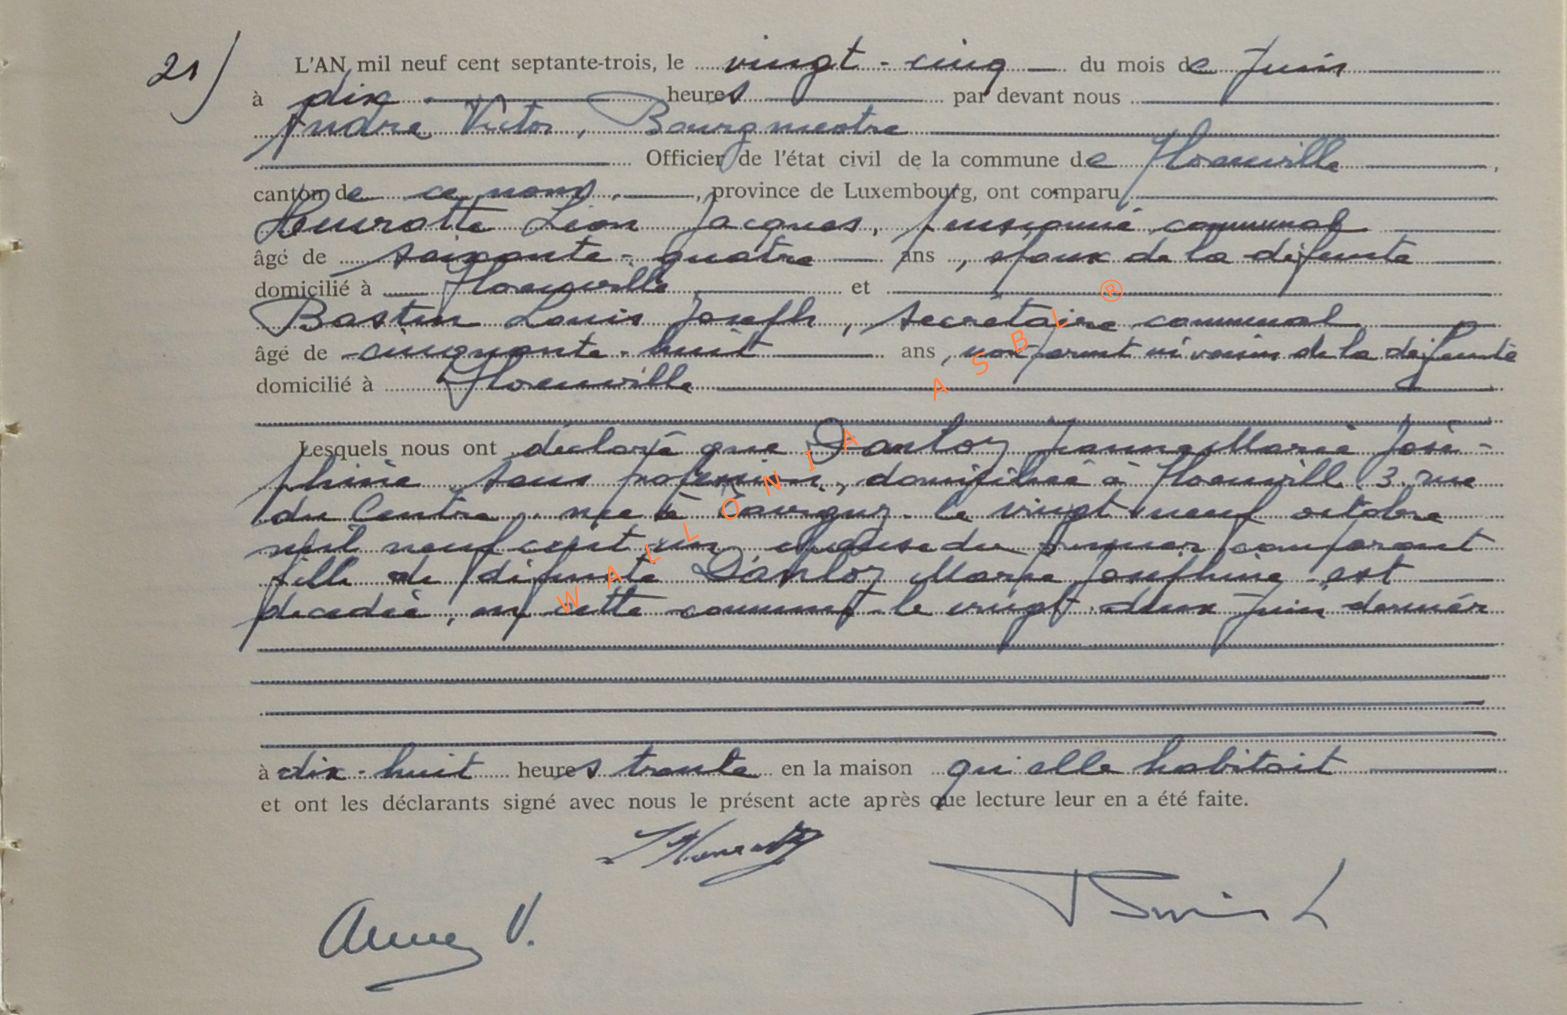 21) L'AN mil neuf cent septante-trois, le vingt-cinq du mois de Juin
à dix heures par devant nous
André Victor, Bourgmestre
Officier de l'état civil de la commune de Florenville,
canton de ce nom, province de Luxembourg, ont comparu
Henrotte Léon Jacques, pensionné communal
âgé de soixante-quatre ans, époux de la défunte
domicilié à Florenville et
Bastin Louis Joseph, secrétaire communal
âgé de cinquante-huit ans, non parent ni voisin de la défunte
domicilié à Florenville
Lesquels nous ont déclaré que Danloy Jeanne Marie José-
phine sans profession, domiciliée à Florenville 3 rue
du Centre, née à le vingt neuf octobre
mil neuf cent un, épouse du premier comparant
fille de défunte Danloy Marie Joséphine est
décédée, en cette commune le vingt deux Juin dernier
à dix-huit heures trente en la maison qu'elle habitait
et ont les déclarants signé avec nous le présent acte après que lecture leur en a été faite.
WALLONIA ASBL ®